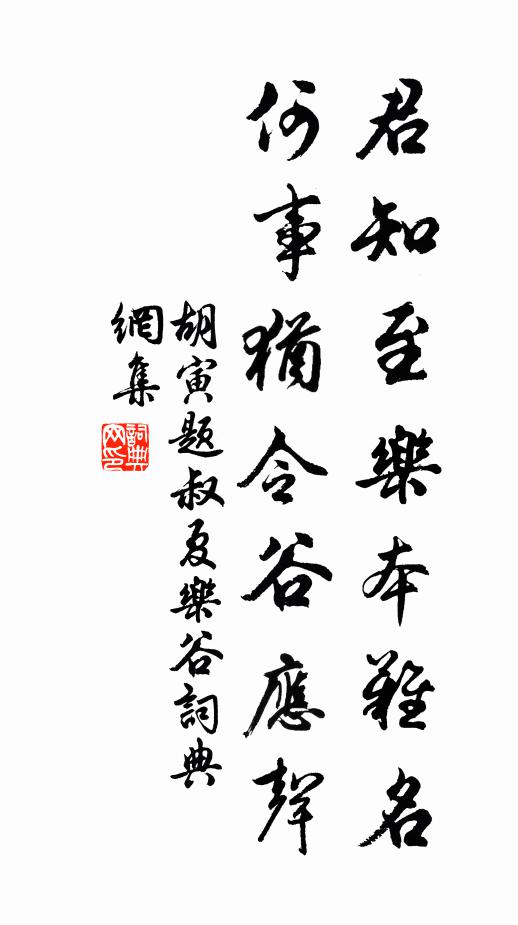 君知至樂本難名
何事猶令谷應聲
胡寅題叔夏樂谷詞典
網集
詞典
网印